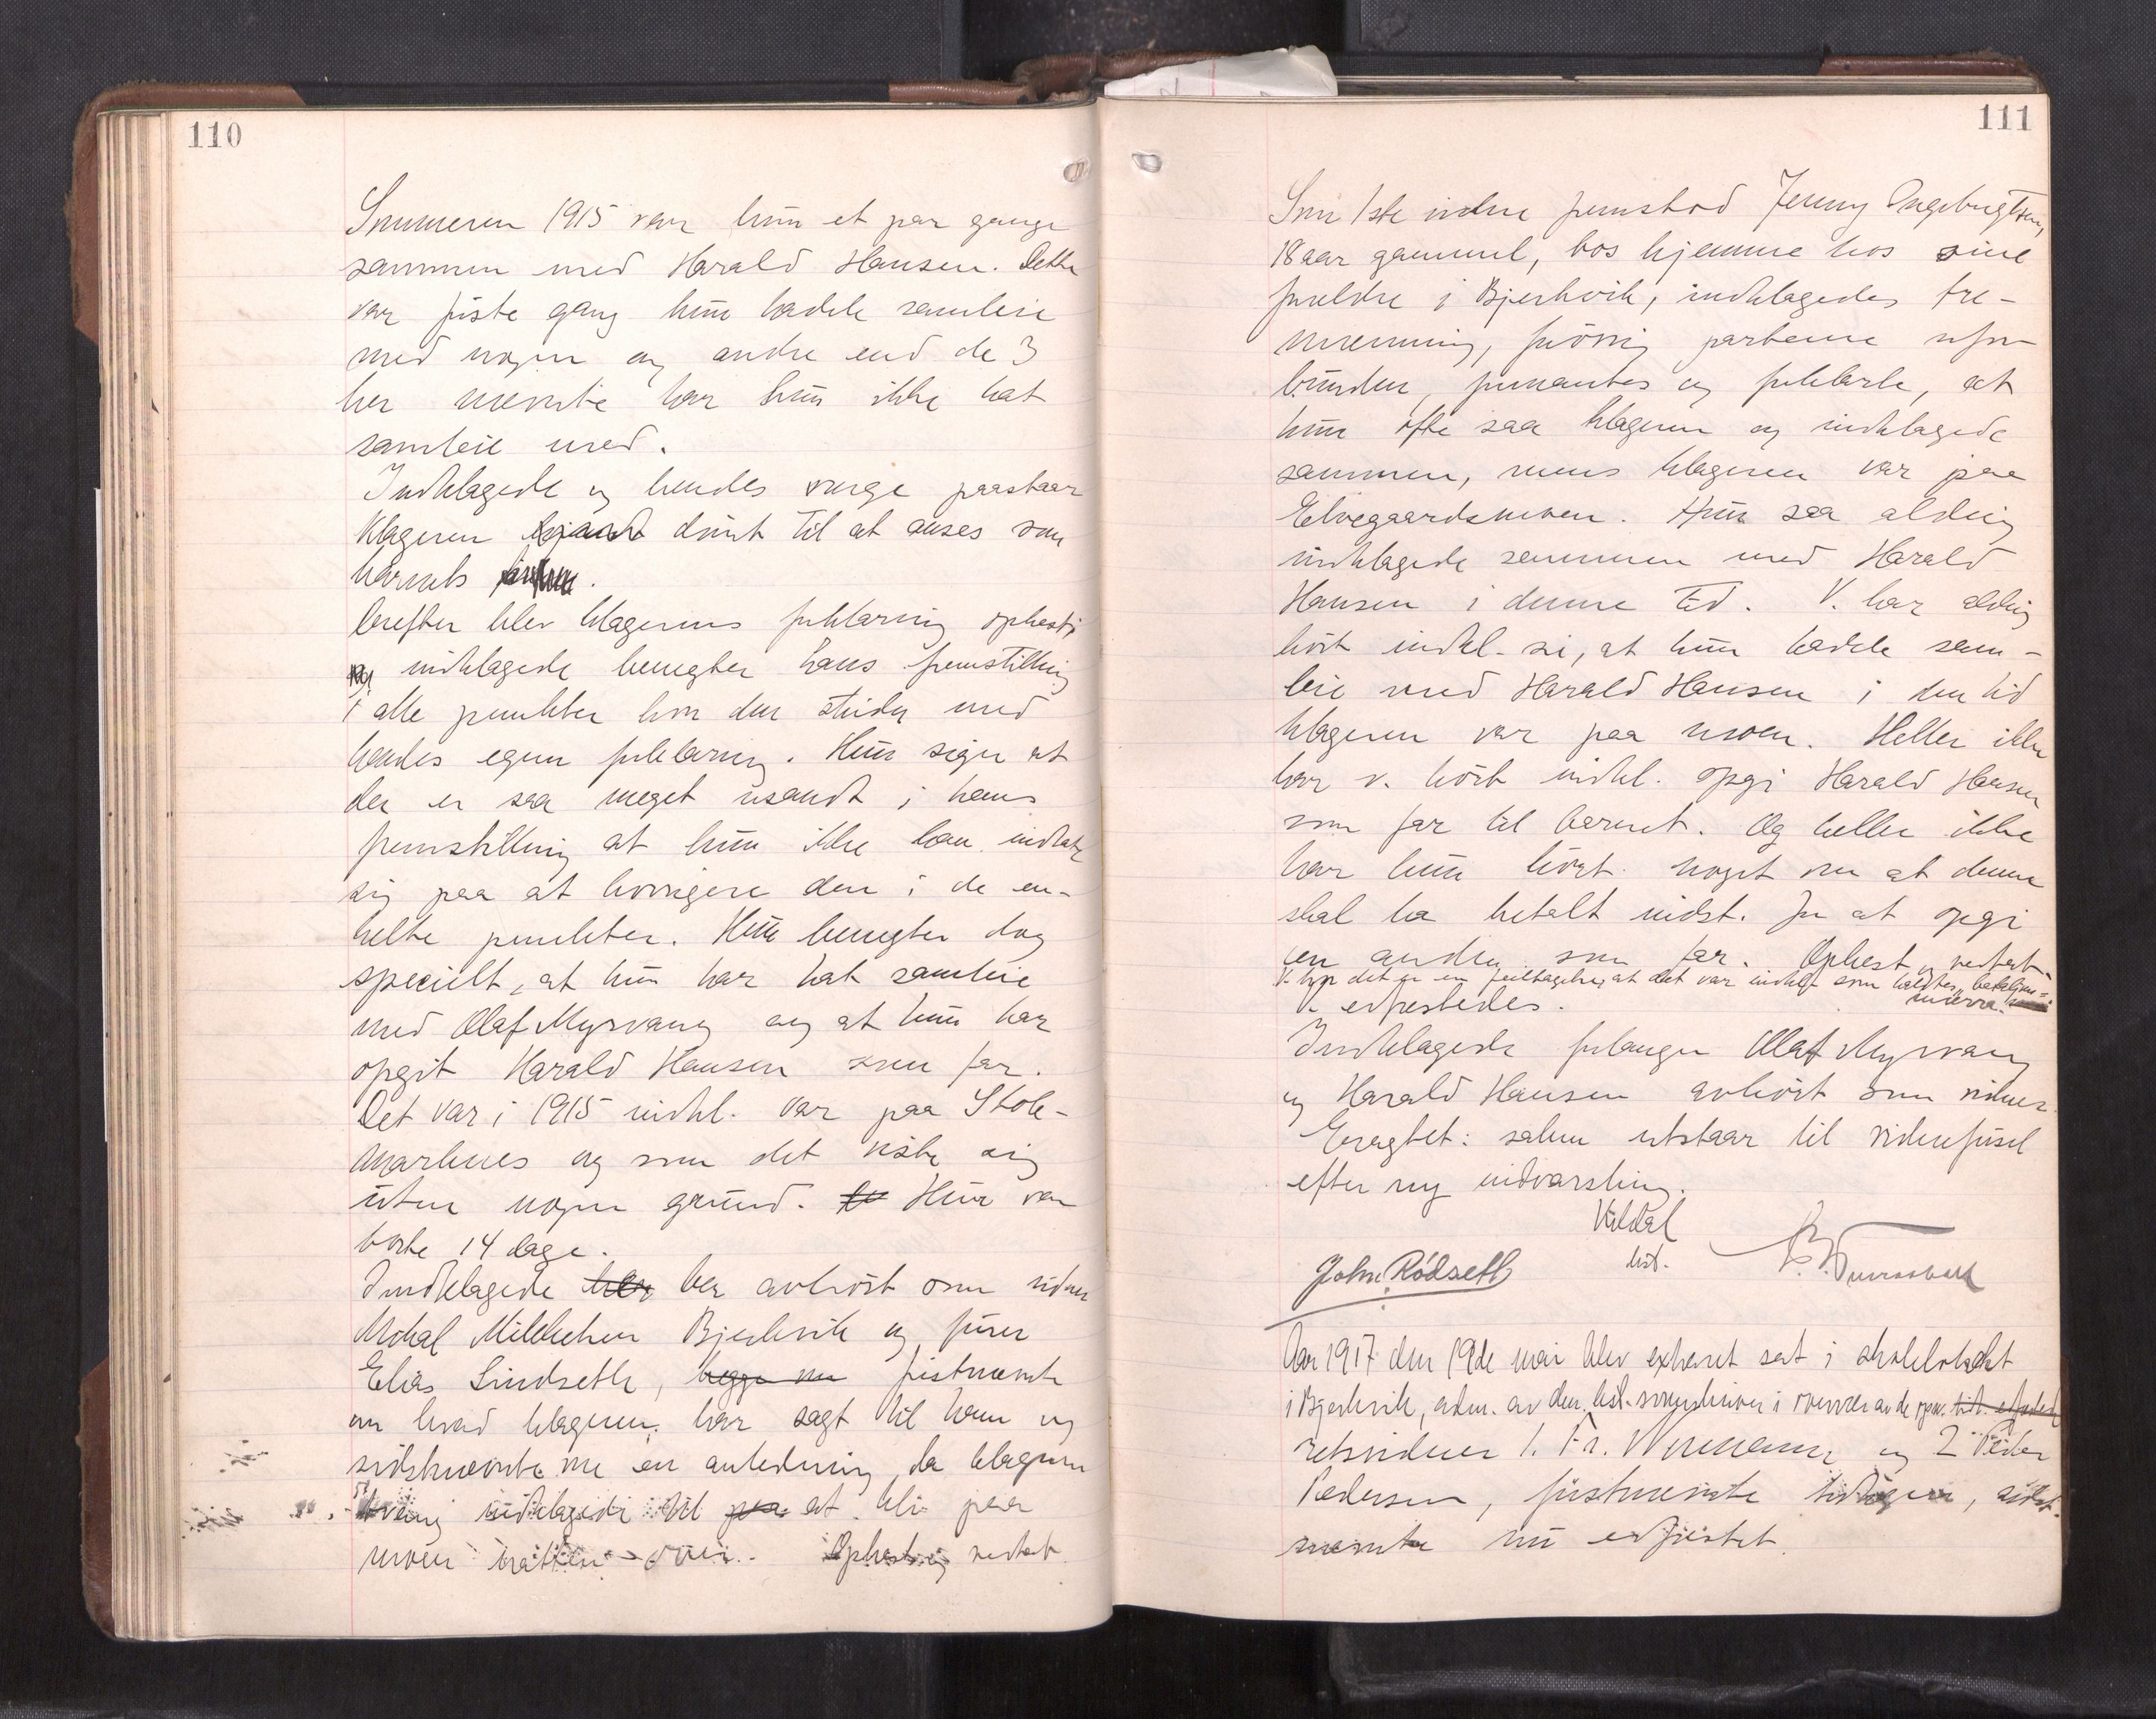 110
Sommeren 1915 var hun et par gange
sammen med Harald Hansen. Dette
var første gang hun hadde samleie
med nogen og andre end de 3
her nævnte har hun ikke hat
samleie med.
Indklagede og hendes verge paastaar
klageren dømt til at anses som
barnets
Derefter blev klagerens forklaring oplest;
indklagede benegter hans fremstilling
i alle punkter hvor den strider med
hendes egen forklaring. Hun siger at
der er saa meget usandt i hans
fremstilling at hun ikke kan indlate
sig paa at korrigere den i de en-
kelte punkter. Hun benegter dog
specielt, at hun har hat samleie
med Olaf Myrvang og at hun har
opgit Harald Hansen som far.
Det var i 1915 indkl. var paa Stok-
marknes og som det viste sig
uten nogen grund. Hun var
borte 14 dage.
Indklagede ber avhørt som vidner
Mikkelsen Bjerkvik og furer
Elias Lindseth, førstnævnte
om hvad klageren har sagt til ham og
sidstnævnte om en anledning, da klageren
tvang indklagede til at bli paa
moen natten over. Oplest og vedtat.
111
Som 1ste vidne fremstod Jenny Ingebrigtsen,
18 aar gammel, bos hjemme hos sine
forældre i Bjerkvik, indklagedes tre-
menning, forøvrig parterne ufor-
bunden, formantes og forklarte, at
hun ofte saa klageren og indklagede
sammen, mens klageren var paa
Elvegaardsmoen. Hun saa aldrig
indklagede sammen med Harald
Hansen i denne tid. V. har aldrig
hørt indkl. si, at hun hadde sam-
leie med Harald Hansen i den tid
klageren var paa moen. Heller ikke
har v. hørt indkl. opgi Harald Hansen
som far til barnet. Og heller ikke
har hun hørt noget om at denne
skal ha betalt indkl. for at opgi
en anden som far. Oplest, vedtat.
det er en feiltagelse, at det var indkl. som
V. edfestedes.
Indklagede forlanger Olaf Myrvang
og Harald Hansen avhørt som vidner.
Eragtet: saken utstaar til vidneførsel
efter ny indvarsling.
Kildal
kst.
John Rödseth
Aar 1917 den 19de mai blev extraret sat i skolelokalet
i Bjerkvik, adm. av den kst. sorenskriver i overvær av de opn.
retsvidner 1. Fr. Normann og 2 Peder
Pedersen, førstnævnte tidligere, sidst-
nævnte nu edfæstet.